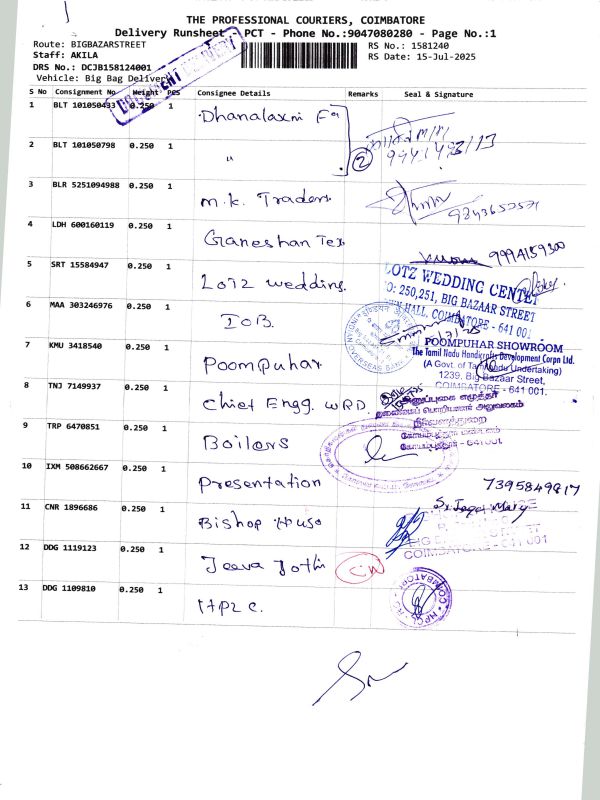 THE PROFESSIONAL COURIERS, COIMBATORE
Delivery Runsheet - PCT - Phone No.:9047080280 - Page No.:1
Route: BIGBAZARSTREET
RS No.: 1581240
Staff: AKILA
RS Date: 15-Jul-2025
DRS No.: DCJB158124001
Vehicle: Big Bag Delivery
S No Consignment No Weight PCS Consignee Details Remarks Seal & Signature
1 BLT 101050433 0.250 1 Dhanalaxmi
2 BLT 101050798 0.250 1 " 2
3 BLR 5251094988 0.250 1 m.k. Traders
4 LDH 600160119 0.250 1 Ganeshan Tex 9994159300
5 SRT 15584947 0.250 1 LOTZ wedding.
LOTZ WEDDING CENTER
NO: 250,251, BIG BAZAAR STREET
TOWN HALL, COIMBATORE - 641 001
6 MAA 303246976 0.250 1 IOB.
OVERSEAS BANK
7 KMU 3418540 0.250 1 Poompuhar
POOMPUHAR SHOWROOM
The Tamil Nadu Handicrafts Development Corpn Ltd.
(A Govt. of Tamilnadu Undertaking)
1239, Big Bazaar Street,
COIMBATORE - 641 001.
8 TNJ 7149937 0.250 1 Chief Engg. WRD
9 TRP 6470851 0.250 1 Boilers
10 IXM 508662667 0.250 1 Presentation 7395849817
11 CNR 1896686 0.250 1 Bishop Huso
COIMBATORE - 641 001
12 DDG 1119123 0.250 1 Jeeva Jothi
13 DDG 1109810 0.250 1 HPLC.